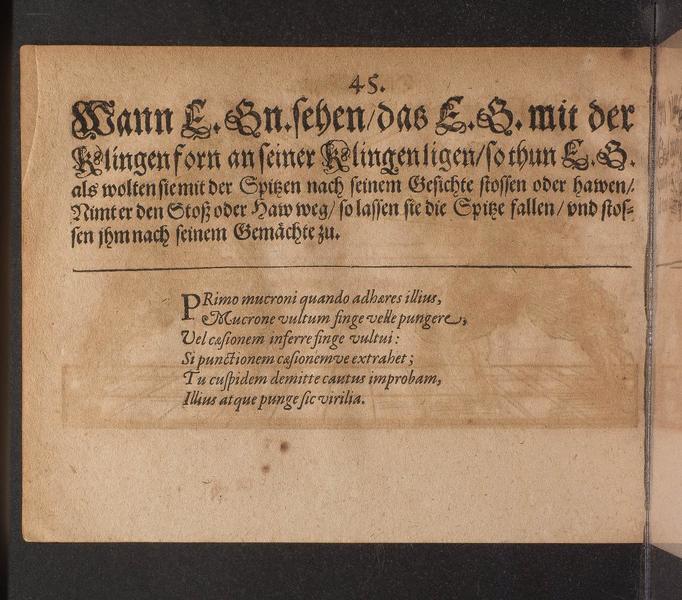 45.
Wann E. Gn. sehen/das E. G. mit der
Klingen forn an seiner Klingen ligen/so thun E. G.
als wolten sie mit der Spitzen nach seinem Gesichte stossen oder hawen/.
Nimt er den Stoß oder Haw weg/ so lassen sie die Spitze fallen/ vnd stos-
sen jhm nach seinem Gemächte zu.
PRimo mucroni quando adhæres illius,
Mucrone vultum finge velle pungere,
Vel cæsionem inferre finge vultui:
Si punctionem cæsionemve extrahet;
Tu cuspidem demitte cautus improbam,
Illius atque punge sic virilia.